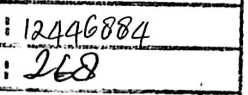 : 12446884
: 268